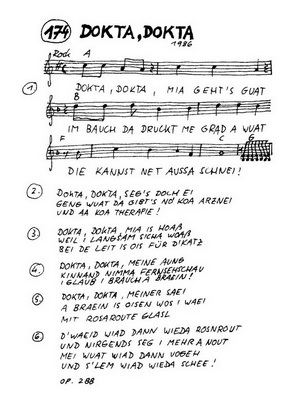 174 DOKTA, DOKTA
1986
Rock A
1 DOKTA, DOKTA, MIA GEHT'S GUAT
B
IM BAUCH DA DRUCKT ME GRAD A WUAT
F C G
DIE KANNST NET AUSSA SCHNEI!
2 DOKTA, DOKTA, SEG'S DOCH EI
GENG WUAT DA GIBT'S NO KOA ARZNEI
UND AA KOA THERAPIE!
3 DOKTA, DOKTA, MIA IS HOAß
WEIL I LANGSAM SICHA WOAß
BEI DE LEIT IS OIS FÜR D'KATZ
4 DOKTA, DOKTA, MEINE AUNG
KINNAND NIMMA FERNSEHSCHAU
I GLAUB I BRAUCH A BRAEIN!
5 DOKTA, DOKTA, MEINER SAEI
A BRAEIN IS OISEN WOS I WAEI
MIT ROSAROUTE GLASL
6 D'WAEID WIAD DANN WIEDA ROSNROUT
UND NIRGENDS SEG I MEHR A NOUT
MEI WUAT WIAD DANN VOGEH
UND S'LEM WIAD WIEDA SCHEE!
OP. 288